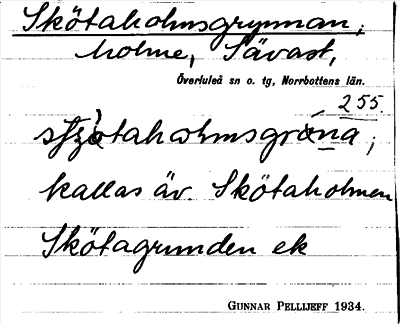 Skötaholmsgrynnan,
holme, Sävast,
Överluleå sn o. tg, Norrbottens län.
255.
kallas äv. Skötaholmen
Skötagrunden ek
GUNNAR PELLIJEFF 1934.